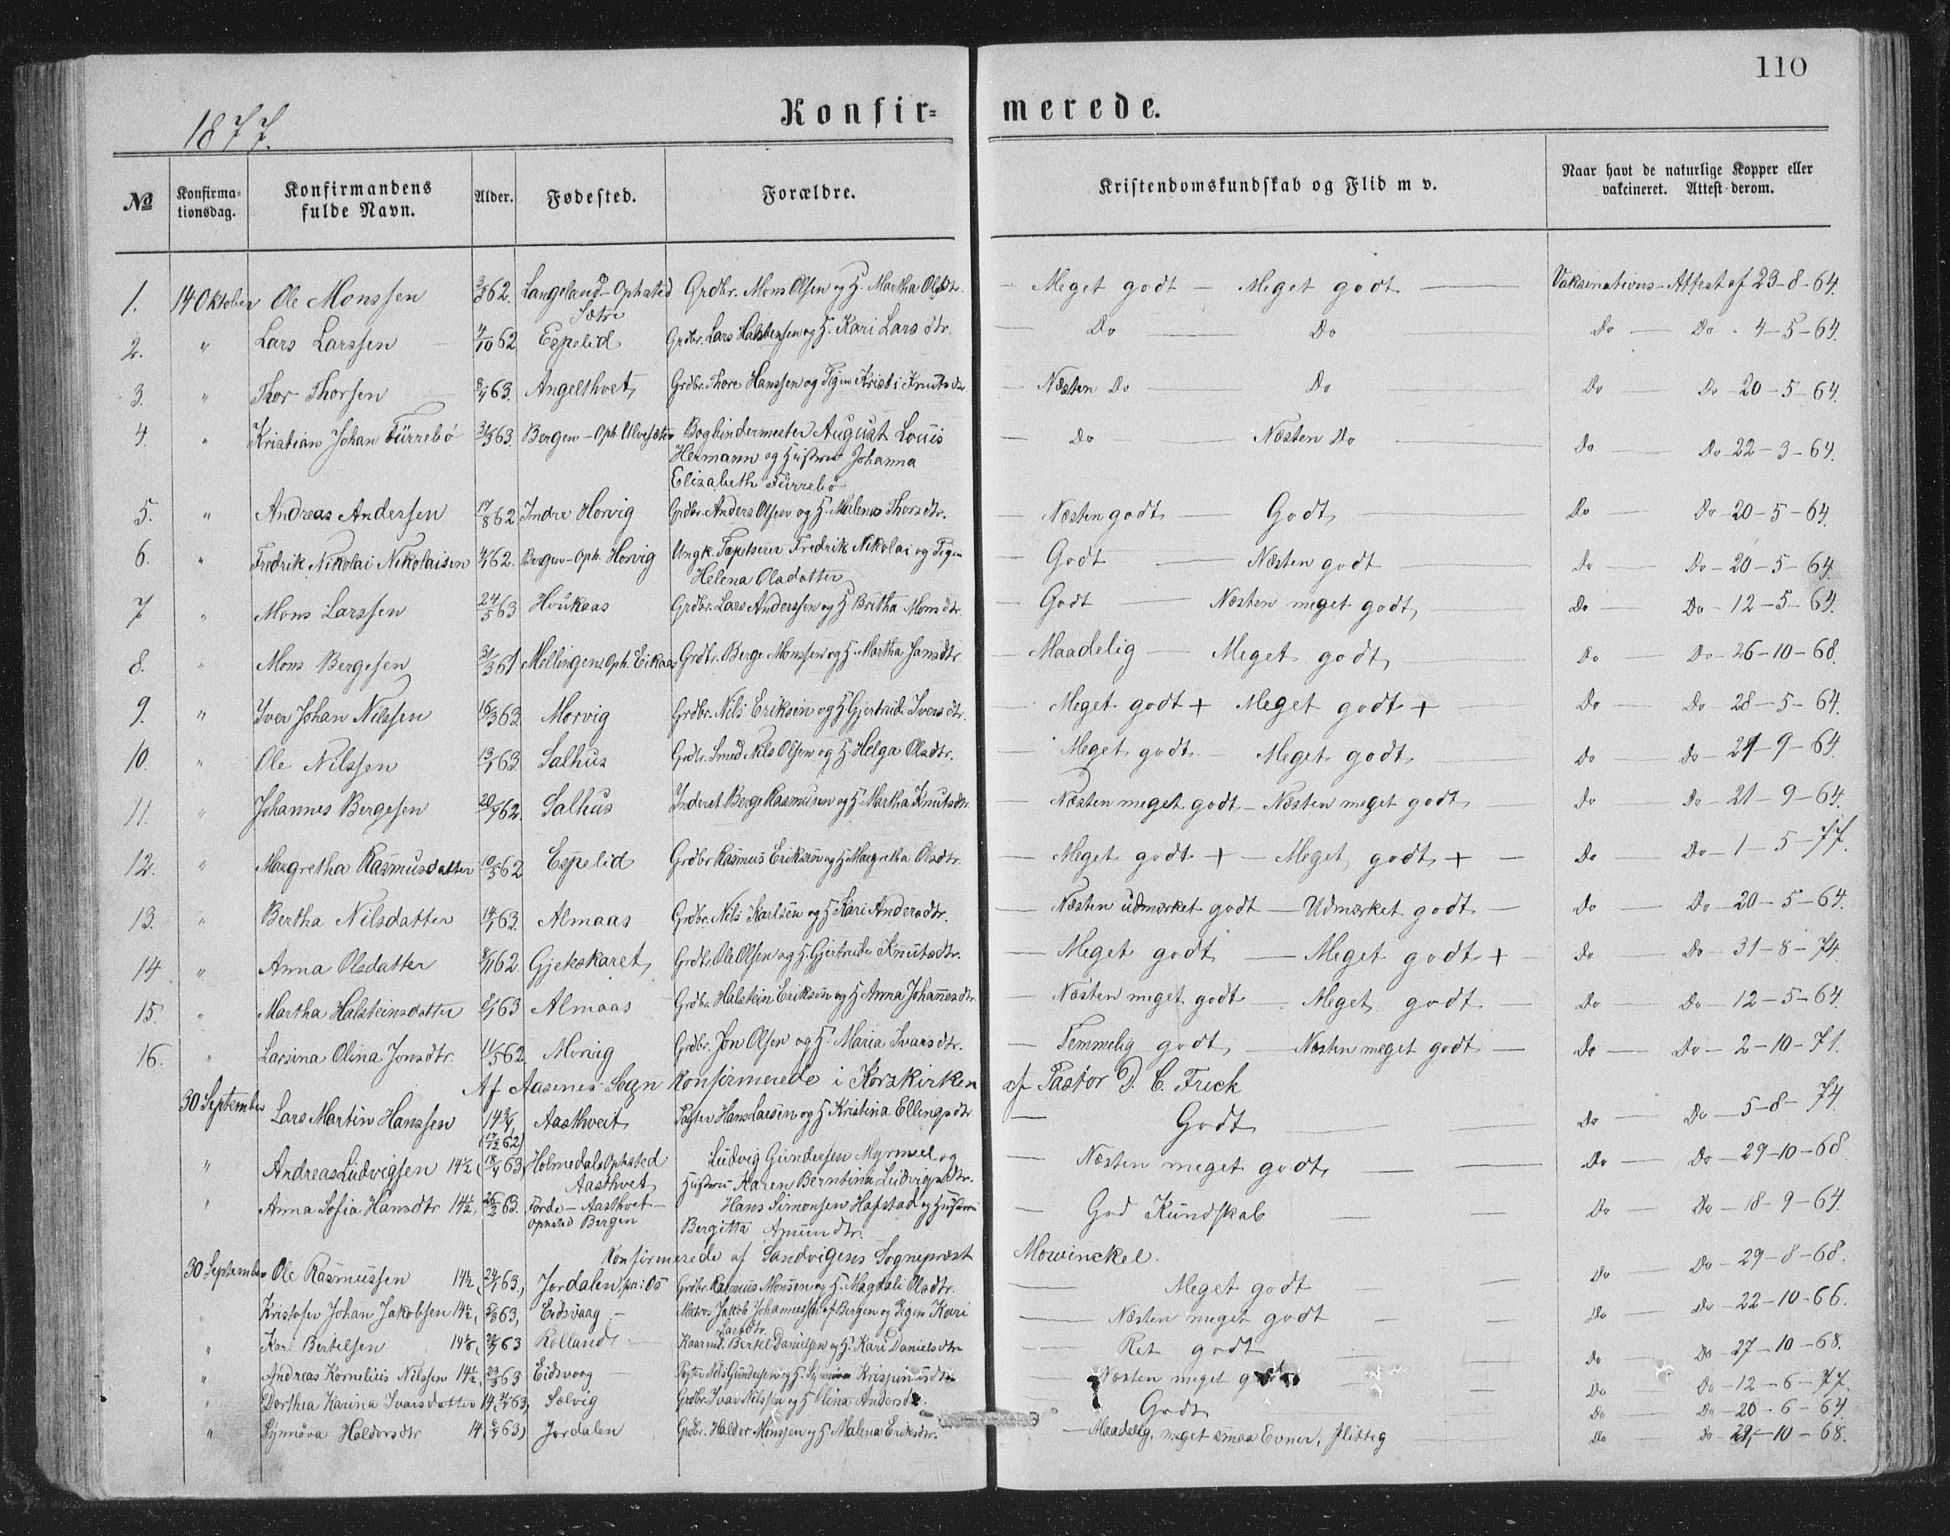 110
1877.
Konfir= merede.
№ Konfirma-tionsdag. Konfirmandens fulde Navn. Alder. Fødested. Forældre. Kristendomskundskab og Flid m v. Naar havt de naturlige Kopper eller vakcineret. Attest derom.
1. 14 Oktober Ole Monssen 62. Langeland Ophsted Sætre Grdbr. Mons Olsen og H. Martha Olsdtr. — Meget godt — Meget godt — Vaksinations-Attest af 23-8-64.
2. " Lars Larssen 4/10 62 Espelid Grdbr. Lars Halstensen og H. Kari Larsdtr. — Do Do Do — Do 4-5-64.
3. " Thor Thorsen 63. Angelthvet Grdbr. Thore Hanssen og Pigen Kristi Knutsdtr — Næsten Do — Do Do Do 20-5-64.
4. " Kristian Johan Fürrebö 63. Bergen - Oph. Ulvesæter Bogbindermester August Louis — Do — Næsten Do — Do — Do 22-3-64.
Hermann og Hustru Johanna
Elizabeth Fürrebö
5. " Andreas Andersen 17/8 62 Indre Horvig Grdbr. Anders Olsen og H. Malena Thorsdtr. — Næsten godt — Godt — Do Do - 20-5-64.
6. " Fredrik Nikolai Nikolaisen 62. Bergen - Oph. Horvig Ungk. Tapetserer Fredrik Nikolai og Pigen — Godt — Næsten godt Do — Do - 20-5-64.
Helena Olsdatter
7 " Mons Larssen 24/5 63 Houkaas Grdbr. Lars Anderssen og H. Britha Monsdtr. — Godt — Næsten meget godt, Do — Do - 12-5-64.
8. " Mons Bergesen 31/3 61 Mellingen Oph. Eikaas Grdbr. Berge Monssen og H. Martha Jansdtr. — Maadelig — Meget godt, Do — Do - 26-10-68.
9. " Iver Johan Nilssen 16/3 63. Morvig Grdbr. Nils Eriksen og H Gjertrude Iversdtr. — Meget godt + Meget godt + Do — Do 28-5-64.
10. " Ole Nilssen 13/1 63. Salhus Grdbr. Smed Nils Olsen og H. Helga Olsdtr. — Meget godt. Meget godt, Do — Do 21-9-64.
11. " Johannes Bergesen 62. Salhus Inderst Berge Rasmusen og H Martha Knutsdtr — Næsten meget godt — Næsten meget godt, — Do — Do - 21-9-64.
12. " Margretha Rasmusdatter 10/5 62 Espelid Grdbr Rasmus Eriksen og H Margretha Olsdtr. — Meget godt + — Meget godt + — Do — Do - 1-5-77.
13. " Bertha Nilsdatter 14/1 63. Almaas Grdbr. Nils Karlsen og H Kari Andersdtr. — Næsten udmærket godt — Udmærket godt — Do — Do - 20-5-64.
14 " Anna Olsdatter 62 Gjekskaret Grdbr. Ole Olsen og H. Gjertrude Knutsdtr. — Meget godt — Meget godt + — Do — Do - 31-8-74.
15. " Martha Halsteinsdatter 63 Almaas Grdbr. Halstein Eriksen og H Anna Johannesdtr — Næsten meget godt Meget godt — Do — Do - 12-5-64.
16. " Larsina Olina Jonsdtr. 11/5 62 Morvig Grdbr. Jon Olsen og H. Maria Ivarsdtr. — Temmelig godt, — Næsten meget godt — Do — Do - 2-10-71.
Af Aasenes Sogn konfirmerede i Korskirken af Pastor D. C. Frick
30 September Lars Martin Hanssen (17/12 62) Aasthveit Hans Larsen og H Kristina Ellingsdtr — Godt — Do — Do - 5-8-74.
" Andreas Ludvigsen 14½ 63, Holmedals Ophsted Aasthvet Ludvig Gundersen Myrmel og Næsten meget godt, — Do — Do - 29-10-68.
Hustru Karen Berntina Ludvigsdtr.
" Anna Sofia Hansdtr 14½, 26/2 63. Förde - Aasthvet - Ophsted Bergen Hans Simonsen Hafstad og Hustru — God Kundskab — Do — Do - 18-9-64.
Bergitta Amundtr.
Konfirmerede af Sandvigens Sognepræst Mowinckel.
30 September Ole Rasmussen 14½ 63, Jordalen, Grdbr. Rasmus Monsen og H. Magdali Olsdtr. — Meget godt — Do — Do - 29-8-68.
" Kristofer Johan Jakobsen 14½, 63, Eidsvaag — Matros Jakob Johannessen af Bergen og Pigen Kari Larsdtr. — Næsten meget godt Do — Do - 22-10-66.
" Karl Bertelsen 63 Rolland — Bertel Danielsen og H. Kari Danielsdtr — Ret godt Do Do - 27-10-68.
" Andreas Kornelius Nilssen 14½, 63 Eidsvaag — Nils Gundersen og H. Krispinusdtr — Næsten meget godt Do — Do - 12-6-77.
" Dorthea Karina Ivarsdatter 14, 63, Solvig Grdbr. Ivar Nilssen og H Olina Andersdtr. Godt Do Do - 20-6-64.
" Synnöva Haldorsdtr 14 63) Jordalen Grdbr. Haldor Monssen og H Malena Eriksdtr. — Maadelig, meget smaa Evner, flittig — Do — Do 29-10-68.